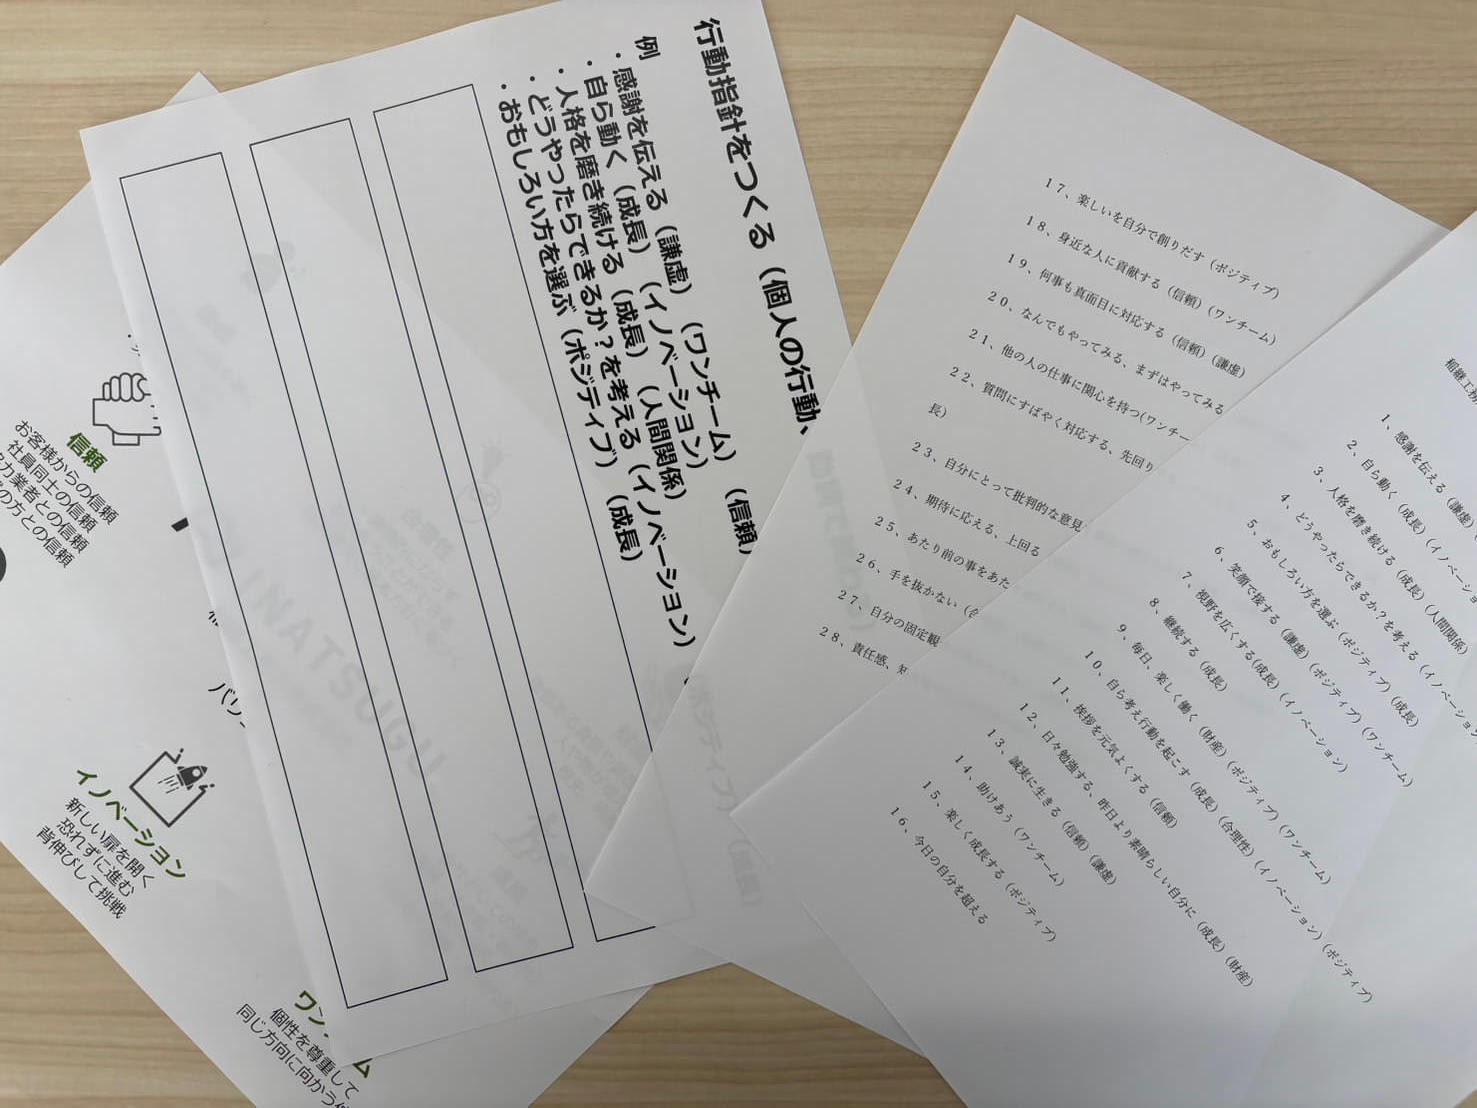 行動指針をつくる（個人の行動、
例
・感謝を伝える（謙虚）（ワンチーム）（信頼）
・自ら動く（成長）（イノベーション）
・人格を磨き続ける（成長）（人間関係）
・どうやったらできるか？を考える（イノベーション）
・おもしろい方を選ぶ（ポジティブ）（成長）
信頼
お客様からの信頼
社員同士の信頼
力業者との信頼
の方との信頼
バリ
イノベーション
新しい扉を開く
恐れずに進む
背伸びして挑戦
ワン
ム
個性を尊重して
同じ方向に向かう
INATSUGU
17、楽しいを自分で創りだす（ポジティブ）
18、身近な人に貢献する（信頼）（ワンチーム）
19、何事も真面目に対応する（信頼）（謙虚）
20、なんでもやってみる、まずはやってみる
21、他の人の仕事に関心を持つ(ワンチー
22、質問にすばやく対応する、先回り
長）
23、自分にとって批判的な意見
24、期待に応える、上回る
25、あたり前の事をあた
26、手を抜かない（
27、自分の固定観
28、責任感、
稲継工務
1、感謝を伝える（謙虚）（
2、自ら動く（成長）（イノベーショ
3、人格を磨き続ける（成長）（人間関係）
4、どうやったらできるか？を考える（イノベーション
5、おもしろい方を選ぶ（ポジティブ）（成長）
6、笑顔で接する（謙虚）（ポジティブ）（ワンチーム）
7、視野を広くする(成長）（イノベーション）
8、継続する（成長）
9、毎日、楽しく働く（財産）（ポジティブ）（ワンチーム）
10、自ら考え行動を起こす（成長）（合理性）（イノベーション）（ポジティブ）
11、挨拶を元気よくする（信頼）
12、日々勉強する、昨日より素晴らしい自分に（成長）（財産）
13、誠実に生きる（信頼）（謙虚）
14、助けあう（ワンチーム）
15、楽しく成長する（ポジティブ）
16、今日の自分を超える